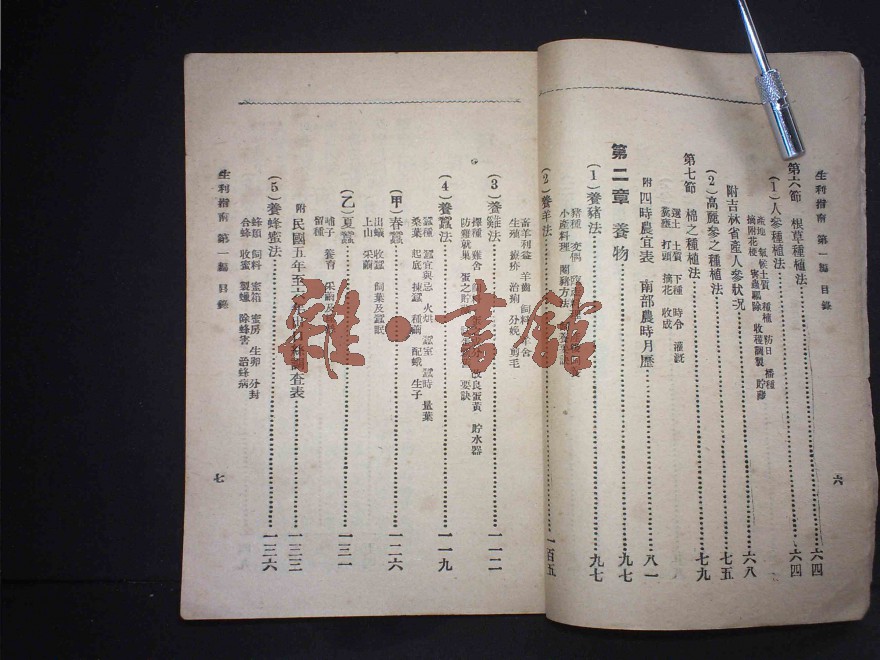 生利指南 第一編 目錄
六
第六節 根草種植法 六四
(1)人參種植法 六四
產地 氣候土質 種植 防日 播種
摘附花梗 害蟲驅除 收穫調製 貯藏
附吉林省產人參狀況 六八
(2)高麗參之種植法 七五
第七節 棉之種植法 七九
選土 土質 下種 時令 灌漑
糞應 打頭 摘花 收成
附四時農宜表 南部農時月歷 八一
第二章 養物 九七
(1)養豬法 九七
豬種
小產料理 閹豬方法
(2)養羊法 一百五
畜羊利益 羊齒 飼料
生殖 療疥 治痢 分娩 剪毛
(3)養雞法 一一二
擇種 雞舍 改良蛋黃 貯水器
防雞就巢 蛋之貯 要訣
(4)養蠶法 一一九
蠶種 蠶宜與忌 火烘 蠶室 蠶時 量葉
桑葉 起底 揀蠶 種繭 配蛾 生子
(甲)春蠶 一二六
出蟻 收蠶 飼葉及蠶眠
上山 采繭
(乙)夏蠶 一三一
哺子 養育 采繭
留種
附民國五年至六年 調查表 一三三
(5)養蜂蜜法 一三六
蜂類 飼料 蜜箱 蜜房 生卵 分封
合蜂 收蜜 製蠟 除蜂害 治蜂病
生利指南 第一編 目錄
七
雜·書館